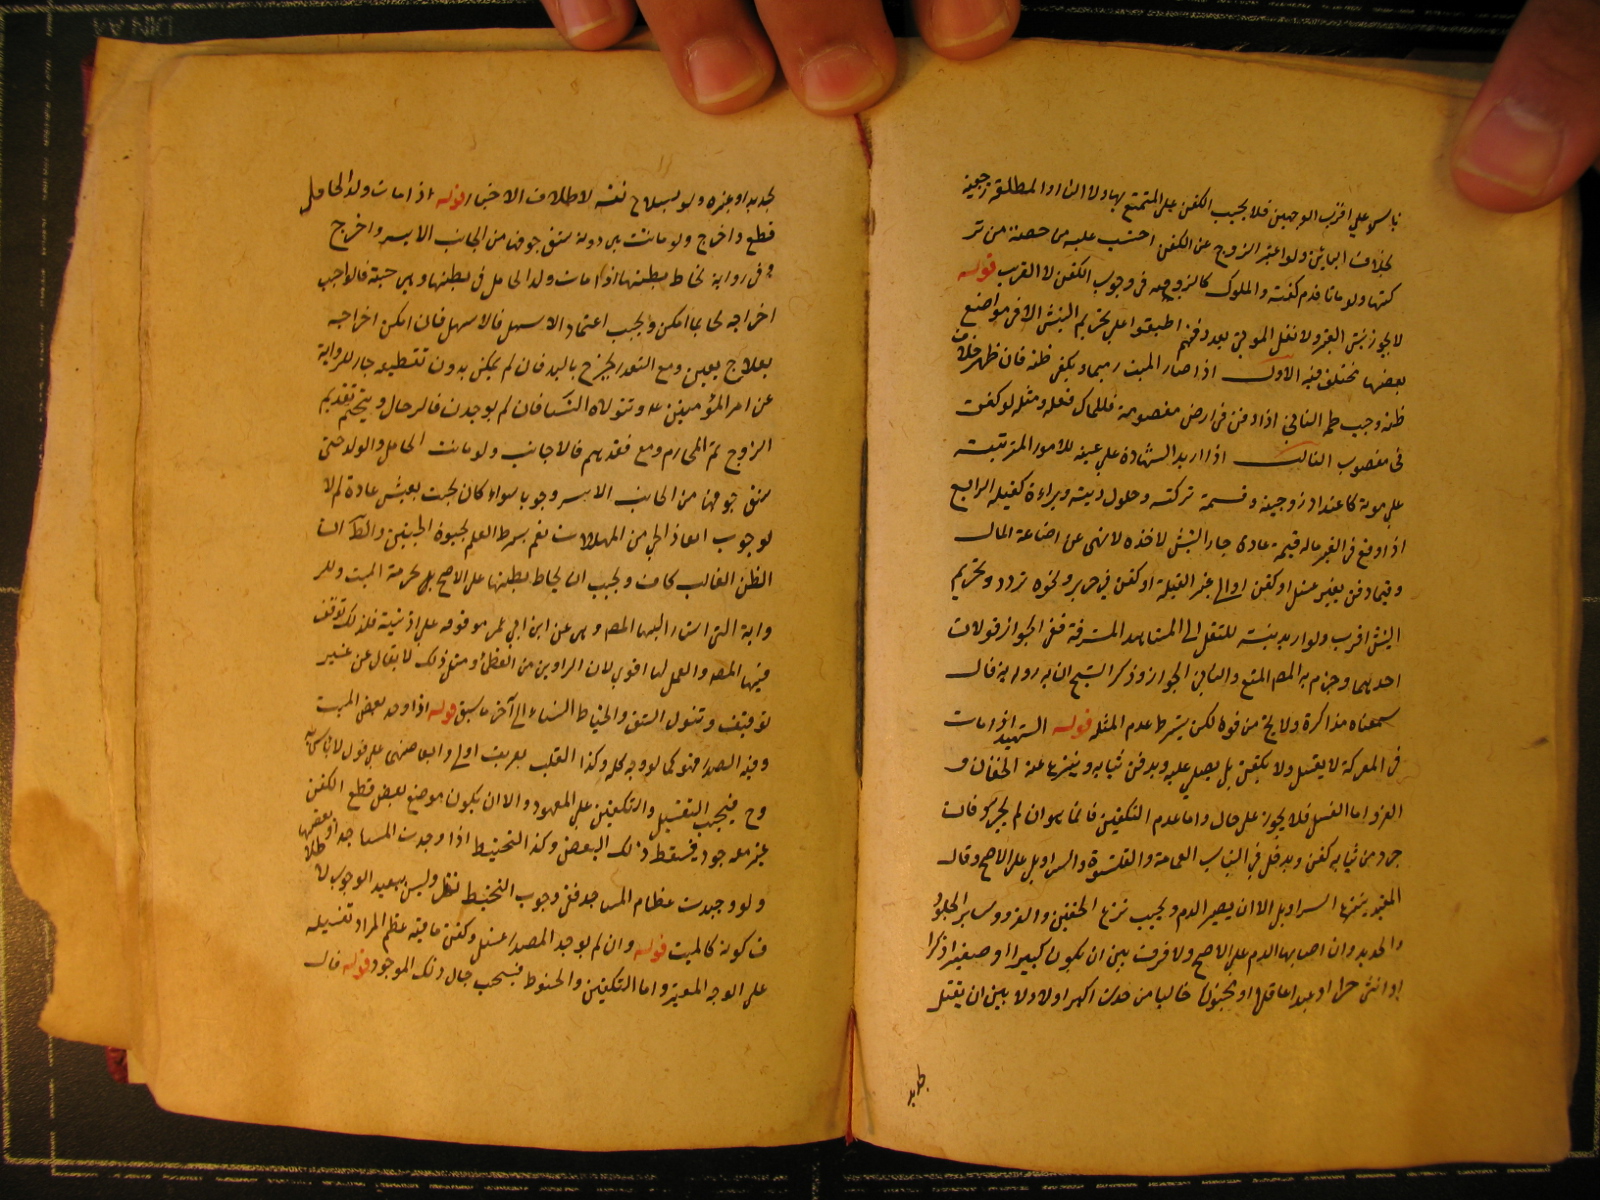 بالنس على اقرب الوجهين فلا يجب الكفن على المتمتع بها ولا الناو المطلقة رجعية
بخلاف البائن ولو اعسر الزوج عن الكفن احتسب عليه من حصته من تر
كتها ولو ماتا قدم كفنه والمملوك كالزوجه فى وجوب الكفن لا القريب قوله
لا يجوز نبش القبر ولا نقل الموتى بعد دفنهم اطبقوا على تحريم النبش الا فى مواضع
بعضها مختلف فيه الاول اذا صار الميت رميما ويكفى ظنه فان ظهر خلاف
ظنه وجب طم الثانى اذا دفن فى ارض مغصوبة فللمالك قلعه ومثله لو كفن
فى مغصوب الثالث اذا اريد الشهادة على عينه للامور المترتبة
على موته كاعتداد زوجته وقسمة تركته وحلول دينه وبراءة كفيله الرابع
اذا وقع فى القبر ماله قيمة عادة جاز النبش لاخذه للنهى عن اضاعة المال
وفيما دفن بغير غسل او كفن او الى غير القبلة او كفن فى حرير ونحوه تردد وتحريم
النبش اقرب ولو اريد نبشه للنقل الى المشاهد المشرفة ففى الجواز قولان
احدهما وجزم به المصم المنع والثانى الجواز وذكر الشيخ ان به رواية قال
سمعناه مذاكرة ولا يخ من قوة لكن يشترط عدم المثله قوله الشهيد اذا مات
فى المعركة لا يغسل ولا يكفن بل يصلى عليه ويدفن بثيابه وينزع عنه الخفان و
الفرو اما الغسل فلا يجوز على حال واما عدم التكفين فانما هو ان لم يجرد فان
جرد من ثيابه كفن ويدخل فى الثياب العمامة والقلنسوة والسراويل على الاصح وقال
المفيد ينزع السراويل الا ان يصير الدم ويجب نزع الخفين والفرو وساير الجلود
والحديد وان اصابها الدم على الاصح ولا فرق بين ان يكون كبيرا او صغيرا ذكرا
او انثى حرا او عبدا عاقلا او مجنونا خاليا من حدث اكبر اولا ولا بين ان يقتل
بحديد
بحديد او غيره ولو بسلاح نفسه لاطلاق الاخبار قوله اذا مات ولد الحامل
قطع واخرج ولو ماتت هى دونه شق جوفها من الجانب الايسر واخرج
و فى رواية تخاط بطنها اذا مات ولد الحامل فى بطنها وهى حية فالواجب
اخراجه كاملا ما امكن ويجب اعتماد الاسهل فالاسهل فان امكن اخراجه
بعلاج بعين ومع التعذر يخرج باليد فان لم يمكن بدون تقطيعه جاز للرواية
عن امير المؤمنين ع وتتولاه النسا فان لم يوجدن فالرجال ويتحتم تقديم
الزوج ثم المحارم ومع فقدهم فالاجانب ولو ماتت الحامل والولد حى
شق جوفها من الجانب الايسر وجوبا سواء كان بحيث يعيش عادة ام لا
لوجوب انقاذ الحى من المهلكات نعم يشترط العلم بحيوة الجنين والظاهر ان
الظن الغالب كاف ويجب ان يخاط بطنها على الاصح لحرمة الميت وللر
واية التى اشار اليها المصم وهى عن ابن ابى عمير موقوفة على اذينة فلذلك توقف
فيها المصم والعمل لها اقوى لان الراويين من العظماء ومثل ذلك لا يقال عن غير
توقيف وتتولى الشق والخياط النساء الى آخر ما سبق قوله اذا وجد بعض الميت
وفيه الصدر فهو كما لو وجد كله وكذا القلب بطريق اولى والبعاضهى على قول لا باس به
وح فيجب التغسيل والتكفين على المعهود والا ان يكون موضع بعض قطع الكفن
غير موجود فيسقط ذلك البعض وكذا التحنيط اذا وجدت المساجد او بعضها
ولو وجدت عظام المساجد ففى وجوب التحنيط نظر وليس ببعيد الوجوب
ف كونه كالميت قوله وان لم يوجد الصدر غسل وكفن ما فيه عظم المراد تغسيله
على الوجه المعتبر واما التكفين والحنوط فبحسب حال ذلك الموجود قوله قال